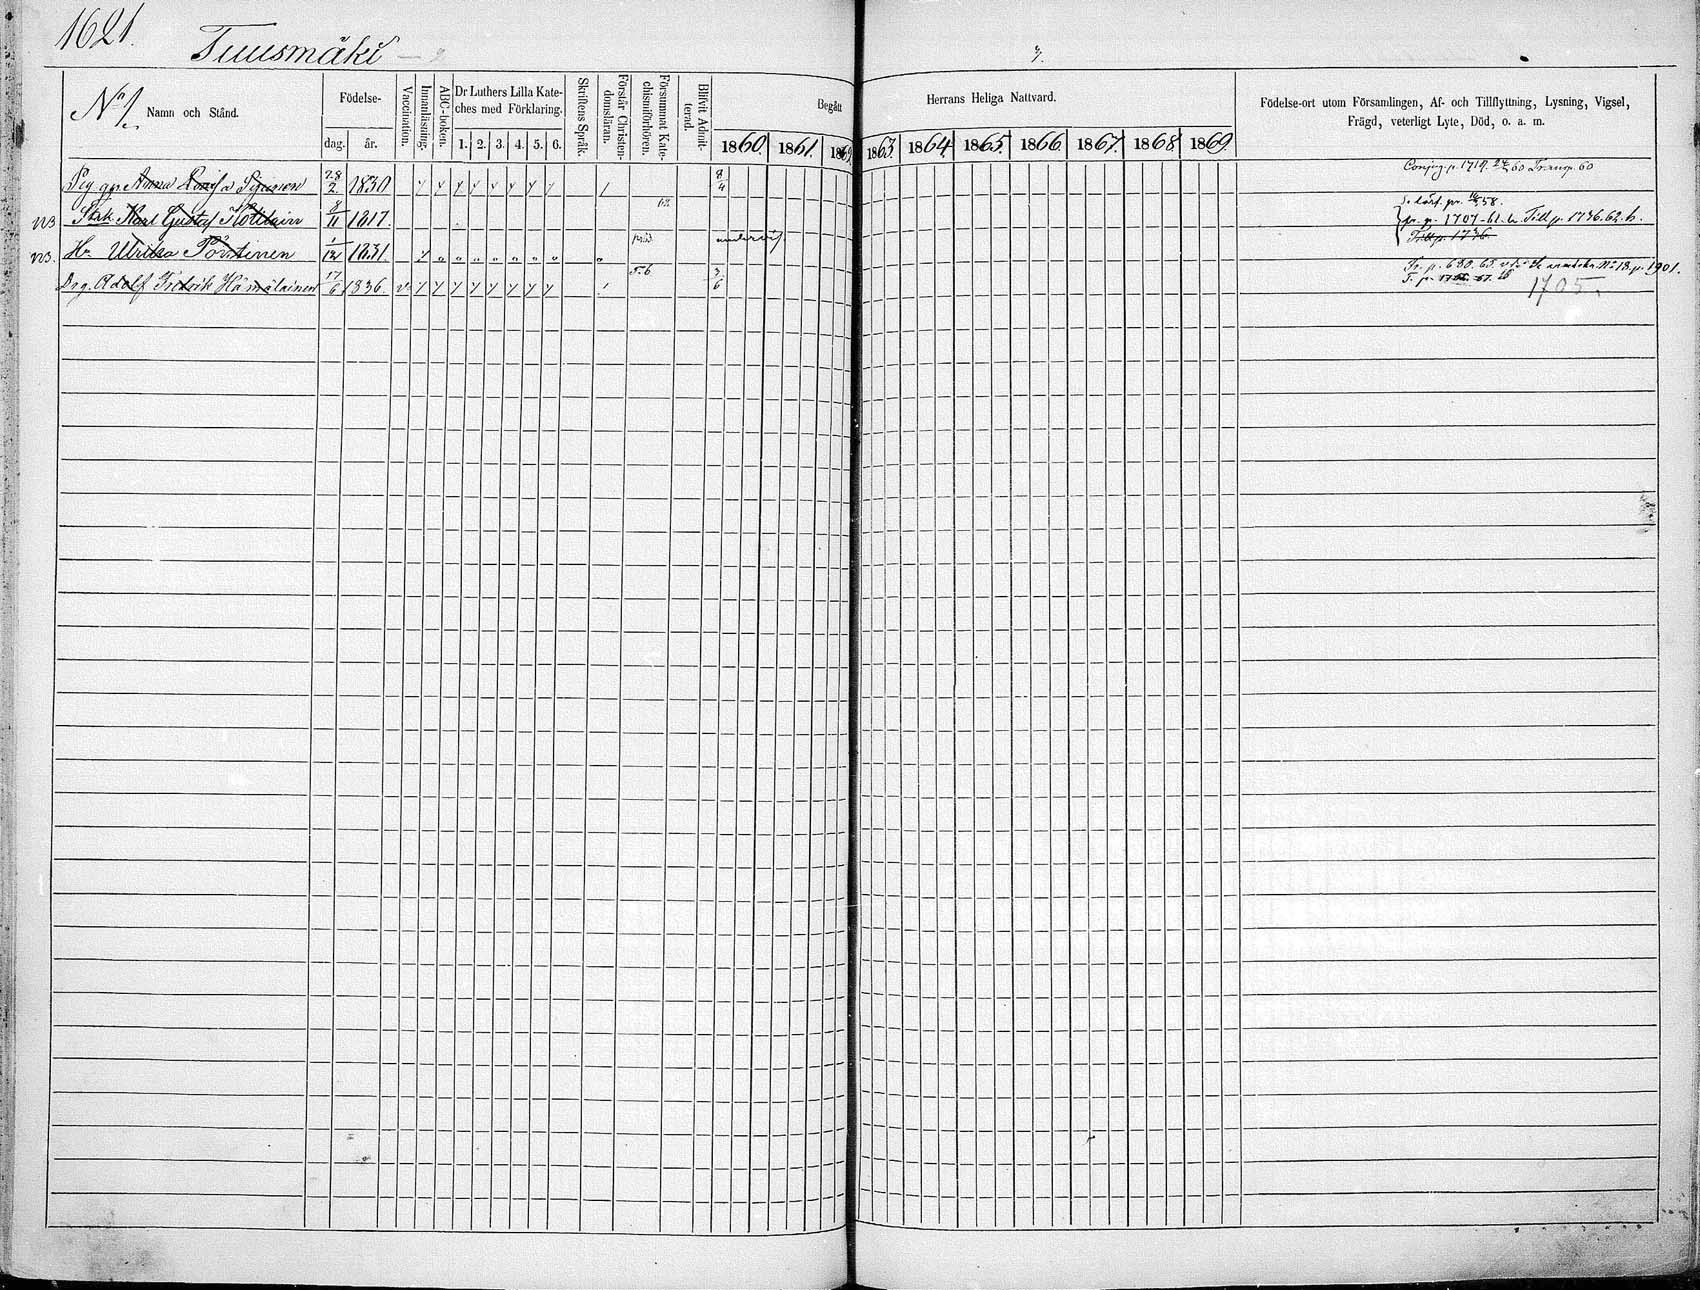 1621.
Tuusmäki
Nº 1. Namn och Stånd.
Födelse-
dag. år.
Vaccination.
Innanläsning.
ABC-boken.
Dr Luthers Lilla Kate-
ches med Förklaring.
1. 2. 3. 4. 5. 6.
Skriftens Språk.
Förstår Christen-
domsläran.
Försummat Kate-
chismiförhören.
Blifvit Admit-
terad.
Begått Herrans Heliga Nattvard.
1860. 1861. 1862. 1863. 1864. 1865. 1866. 1867. 1868 1869
Födelse-ort utom Församlingen, Af- och Tillflyttning, Lysning, Vigsel,
Frägd, veterligt Lyte, Död, o. a. m.
Pig. Anna Lovisa 28/2. 1830 8/4 p. 1719. 60 Transp. 60
Karl Gustaf 8/11 1817. 62 58.
p. 1707-61. Till p. 1736. 62.
Hu Ulrika Pöntinen 1/12 1831 undervis. Till p. 1736.
Drg. Adolf Fredrik Hämäläinen 17/6 1836 56 3/6 Tr. p. 680. 65. Nº 18. p. 1901.
1705.